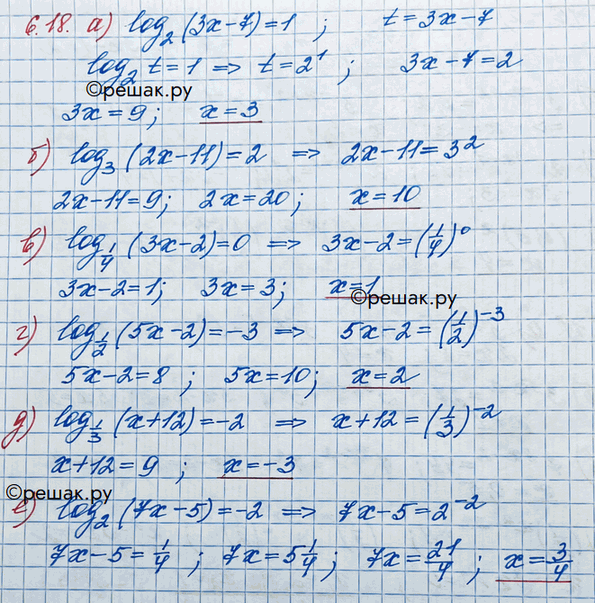 6.18. а) log₂ (3x-7)=1 ; t=3x-7
log₂ t=1 => t=2¹ ; 3x-7=2
©решак.ру
3x=9; x=3
б) log₃ (2x-11)=2 => 2x-11=3²
2x-11=9; 2x=20; x=10
в) log_{1/4} (3x-2)=0 => 3x-2=(1/4)⁰
3x-2=1; 3x=3; x=1
©решак.ру
г) log_{1/2} (5x-2)=-3 => 5x-2=(1/2)⁻³
5x-2=8 ; 5x=10; x=2
д) log_{1/3} (x+12)=-2 => x+12=(1/3)⁻²
x+12=9 ; x=-3
©решак.ру
е) log₂ (7x-5)=-2 => 7x-5=2⁻²
7x-5=1/4 ; 7x=5 1/4 ; 7x=21/4 ; x=3/4